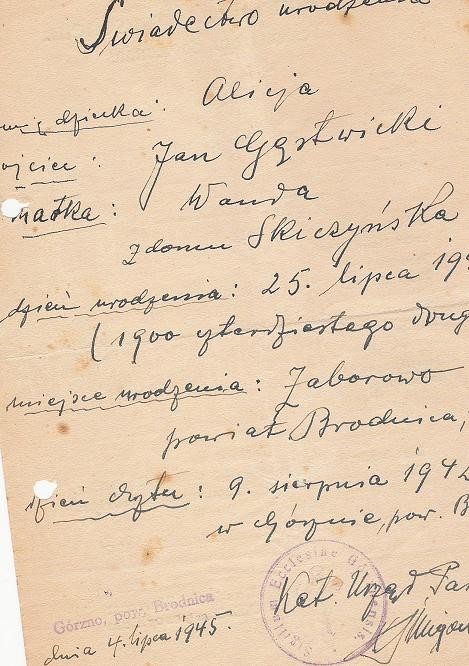 Świadectwo urodzenia
imię dziecka: Alicja
ojciec: Jan
matka: Wanda
z domu Skiczyńska
dzień urodzenia: 25. lipca 194
(1900 czterdziestego drug
miejsce urodzenia: Zaborowo
powiat Brodnica,
dzień chrztu: 9. sierpnia 1942
w Górznie, pow. B
Sigillum Ecclesiae G
Kat. Urząd Par
Górzno, pow. Brodnica
dnia 4. lipca 1945.